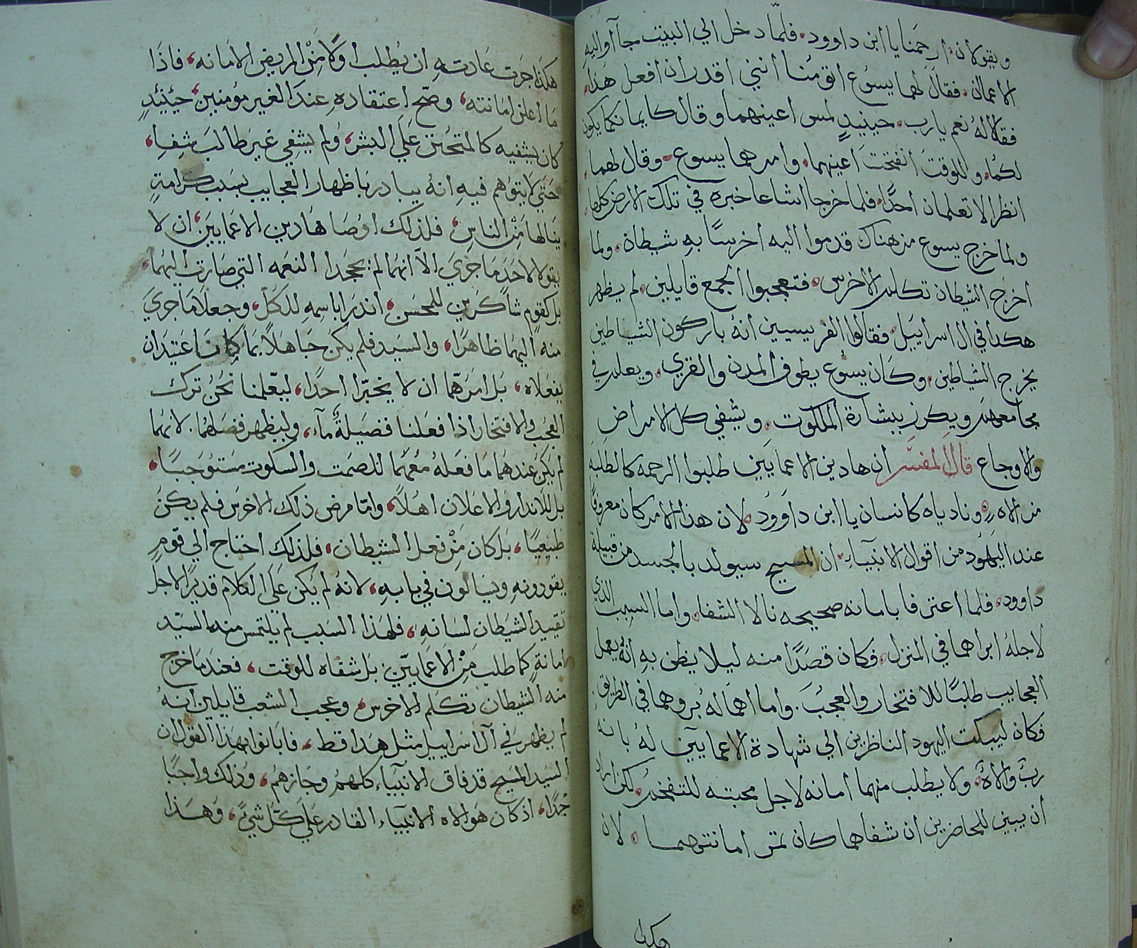 ويقولان ارحمنا يا ابن داوود فلما دخل الي البيت جآ اواليه
الاعمان فقال لهما يسوع اتؤمنا انني اقدر ان افعل هذا
فقالا له نعم يارب حينيدٍ لمس اعينهما وقال كايمانكما يكون
لكما وللوقت انفتحت اعينهما وامرهما يسوع وقال لهما
انظرا لا تعلمان احدًا فلما خرجا اشاعا خبره في تلك الارض كلها
ولما خرج يسوع من هناك قدموا اليه اخرسًا به شيطان ولما
اخرج الشيطان تكلم الاخرس فتعجبوا الجمع قايلين لم يظهر
هكدا في ال اسراييل فقالوا الفريسيين انه باركون الشياطين
يخرج الشياطين وكان يسوع يطوف المدن والقري ويعلم في
مجامعهم ويكرز ببشارة الملكوت ويشفي كل الامراض
والاوجاع قال المفسر ان هادين الاعمايين طلبوا الرحمه كالطلبه
من الاه ونادياه كانسان يا ابن داوود لان هذا الامر كان معروفًا
عند اليهود من اقوال الانبياء ان المسيح سيولد بالجسد من قبيلة
داوود فلما اعترفا بامانه صحيحه نالا الشفا واما السبب الذي
لاجله ابراهما في المنزل فكان قصدًا منه ليلا يظن به انه يعمل
العجايب طلبًا للافتخار والعجب واما اهماله بروهما في الطريق
فكان ليبكت اليهود الناظرين الي شهادة الاعمايين له بانه
ربٌ والاهٌ ولا يطلب منهما امانه لاجل محبته للتفخر لكن اراد
ان يبين للحاضرين ان شفاهما كان ثمر امانتهما لان
هكدا
هكذا جرت عادته ان يطلب اولًا من المريض الامانه فاذا
ما اعلن امانته وصح اعتقاده عند الغير مومنين حينيدٍ
كان يشفيه كالمتحنن علي البشر ولم يشفي غير طالب شفا
حتي لا يتوهم فيه انه يبادر باظهار العجايب بسبب كرامةٍ
ينالها من الناس فلذلك اوصا هادين الاعمايين ان لا
يقولا لاحدٍ ما جري الا انهما لم يجحدا النعمه التي صارت اليهما
بل كقومٍ شاكرين للمحسن اندرا باسمه للكل وجعلا ما جري
منه اليهما ظاهرًا والسيد فلم يكن جاهلًا بما كانا عتيدان
يفعلاه بل امرهما ان لا يخبرا احدًا ليعلمنا نحن ترك
العجب والافتخار اذا فعلنا فضيلةً مآء وليظهر فضلهما لانهما
لم يكن عندهما ما فعله معهما للصمت والسكوت مستوجبًا
بل للاندار والاعلان اهلًا واما مرض ذلك الاخرس فلم يكن
طبيعيًا بل كان من فعل الشيطان فلذلك احتاج الي قومٍ
يقودونه ويسالون في بابه لانه لم يكن علي الكلام قديرًا لاجل
تقييد الشيطان لسانه فلهذا السبب لم يلتمس منه السيد
امانةٍ كما طلب من الاعمايين بل اشفاه للوقت فعند ما خرج
منه الشيطان تكلم الاخرس وعجب الشعب قايلين انه
لم يظهر في آل اسراييل مثل هدا قط فابانوا بهدا القول ان
السيد المسيح قد فاق الانبياء كلهم وجازهم وذلك واجبًا
جدًا اذ كان هو الاه الانبياء القادر علي كل شيء وهذا